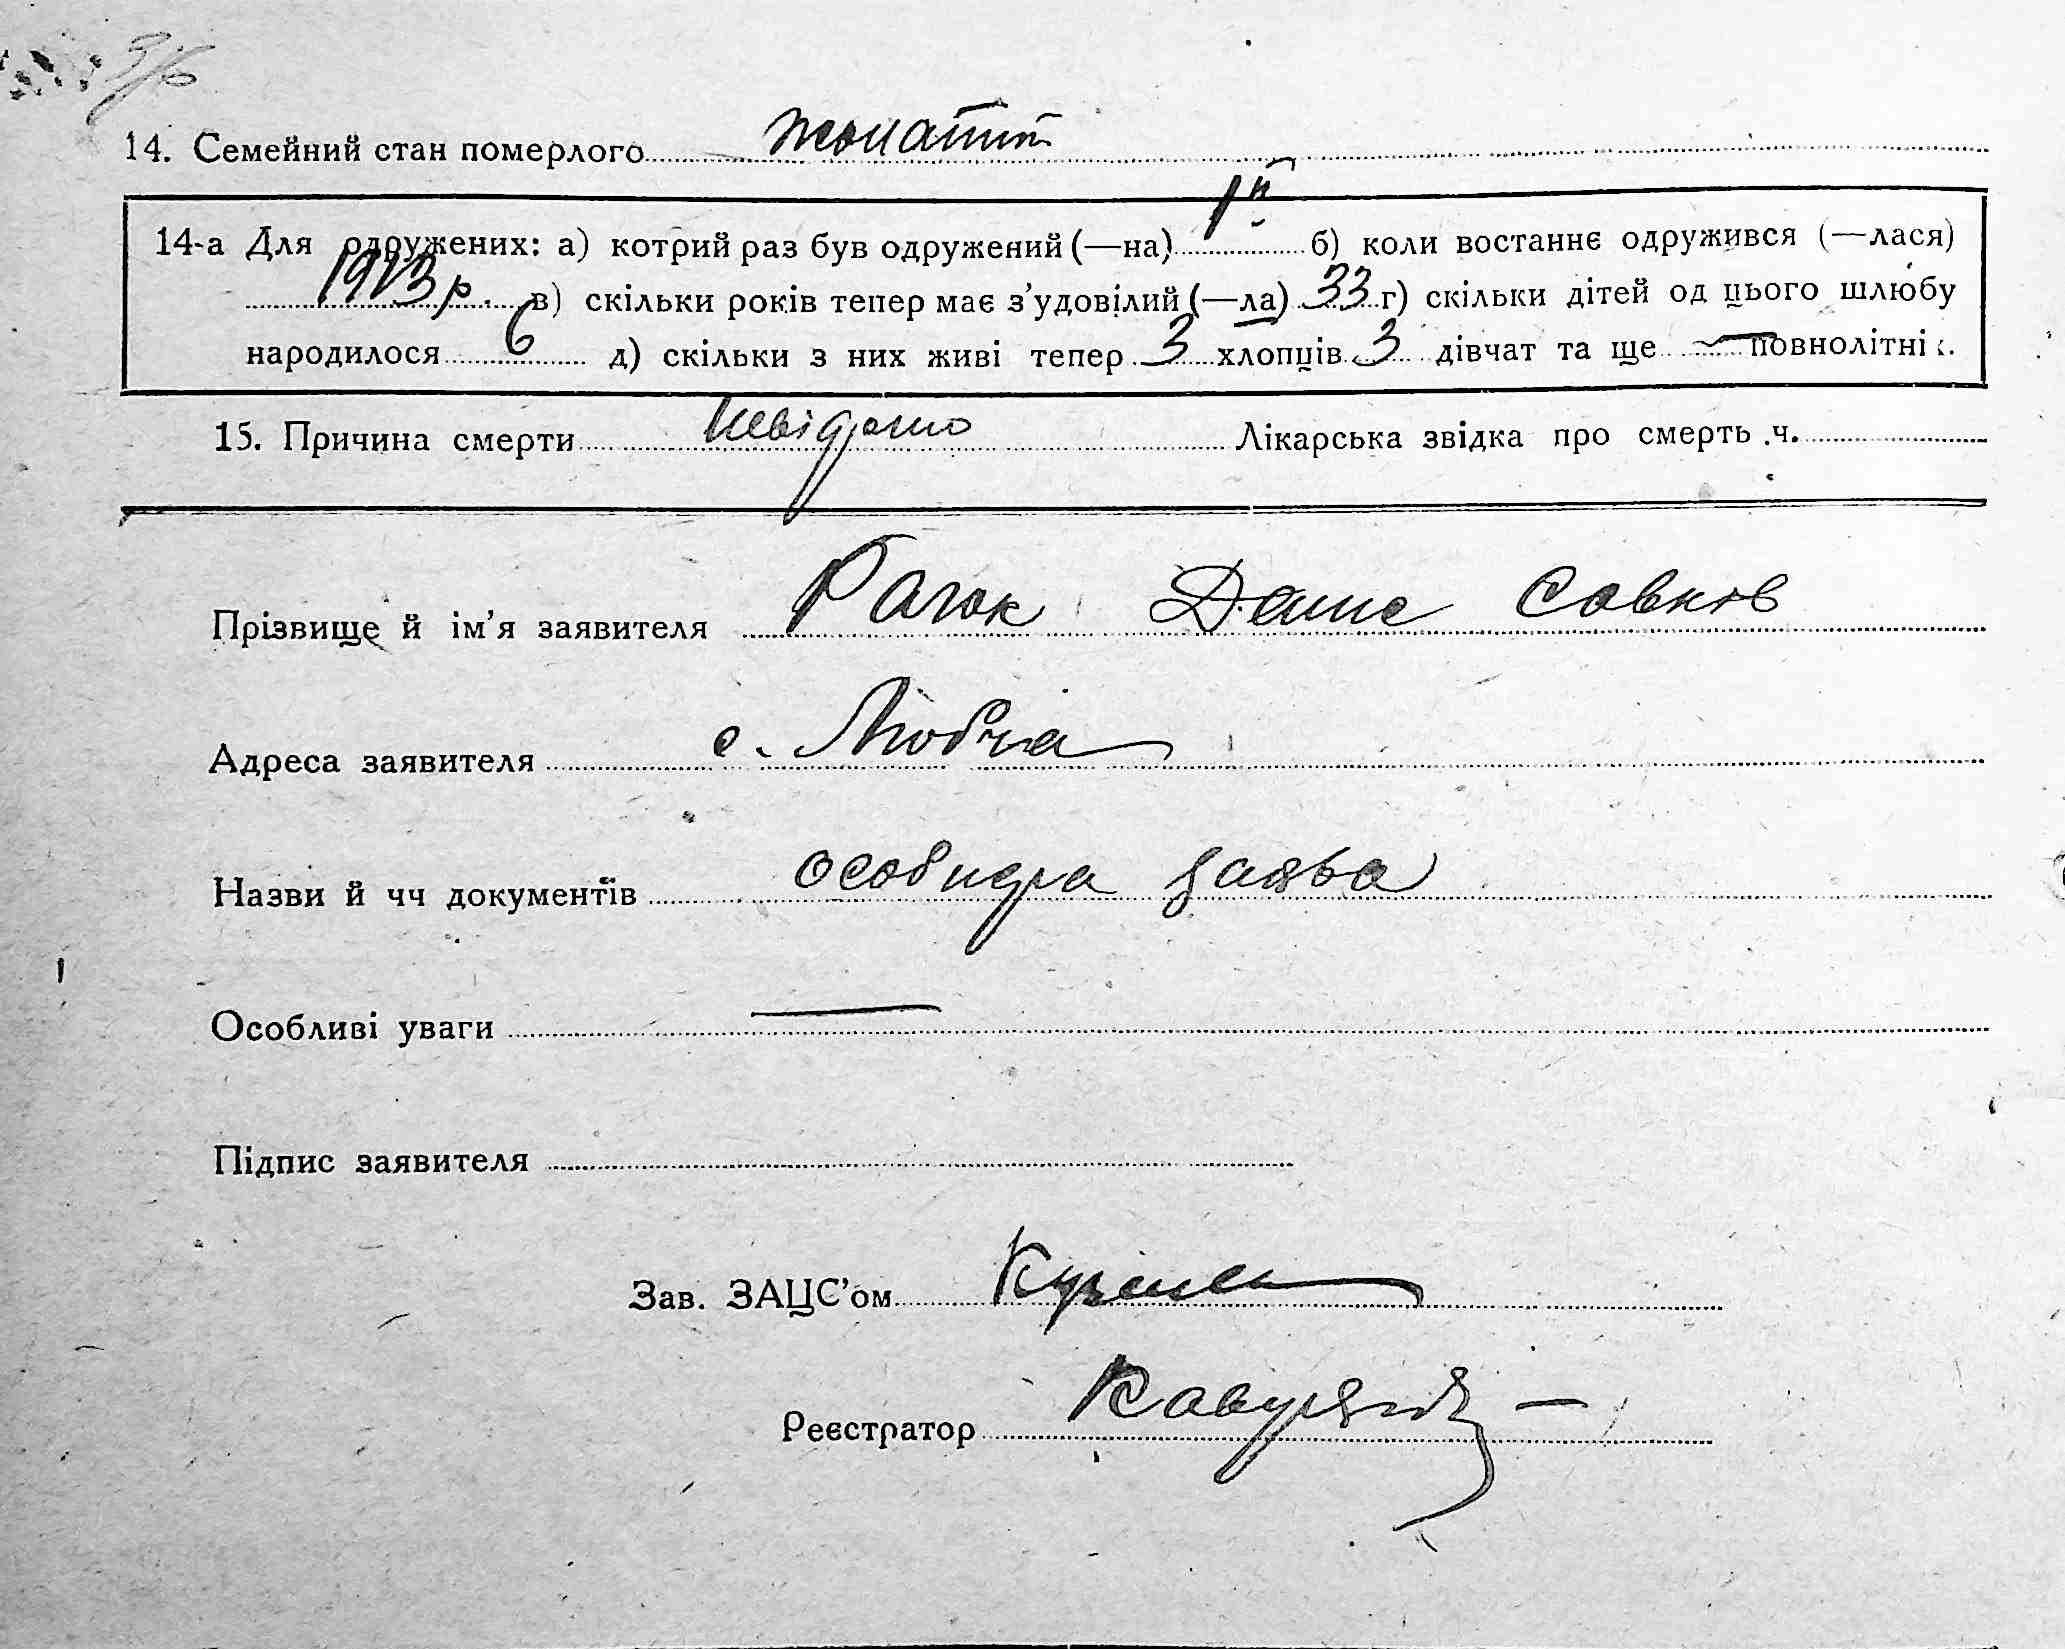 14. Семейний стан померлого жонатий
14-а Для одружених: а) котрий раз був одружений (—на) 1й б) коли востаннє одружився (—лася)
1913 р. в) скільки років тепер має з’удовілий (—ла) 33 г) скільки дітей од цього шлюбу
народилося 6 д) скільки з них живі тепер 3 хлопців 3 дівчат та ще — повнолітні
15. Причина смерти невідомо Лікарська звідка про смерть ч.
Прізвище й ім’я заявителя Рагок Данис Савков
Адреса заявителя с. Любча
Назви й чч документів особидра заява
Особливі уваги —
Підпис заявителя
Зав. ЗАЦС’ом
Реєстратор